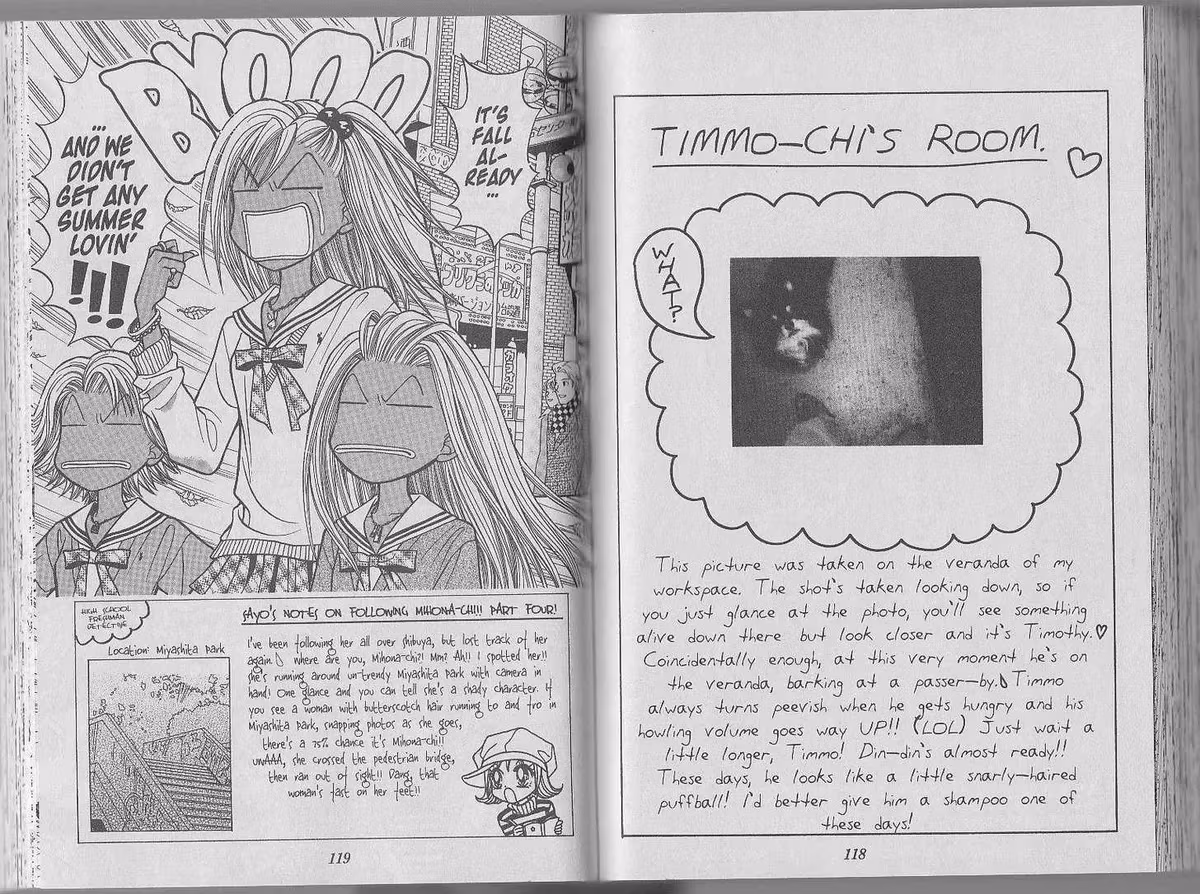 TIMMO-CHI'S ROOM.
WHAT?
This picture was taken on the veranda of my
workspace. The shot's taken looking down, so if
you just glance at the photo, you'll see something
alive down there but look closer and it's Timothy.
Coincidentally enough, at this very moment he's on
the veranda, barking at a passer-by. Timmo
always turns peevish when he gets hungry and his
howling volume goes way UP!! (LOL) Just wait a
little longer, Timmo! Din-din's almost ready!!
These days, he looks like a little snarly-haired
puffball! I'd better give him a shampoo one of
these days!
118
BYOOO
IT'S
FALL
AL-
READY
...
...
AND WE
DIDN'T
GET ANY
SUMMER
LOVIN'
!!!
HIGH SCHOOL
FRESHMAN
DETECTIVE
SAYO'S NOTES ON FOLLOWING MIHONA-CHI!! PART FOUR!
Location: Miyashita Park
I've been following her all over Shibuya, but lost track of her
again. Where are you, Mihona-chi?! Mm? Ah!! I spotted her!!
She's running around un-trendy Miyashita Park with camera in
hand! One glance and you can tell she's a shady character. If
you see a woman with butterscotch hair running to and fro in
Miyashita Park, snapping photos as she goes,
there's a 75% chance it's Mihona-chi!!
UWAAA, she crossed the pedestrian bridge,
then ran out of sight!! Dang, that
woman's fast on her feet!!
119